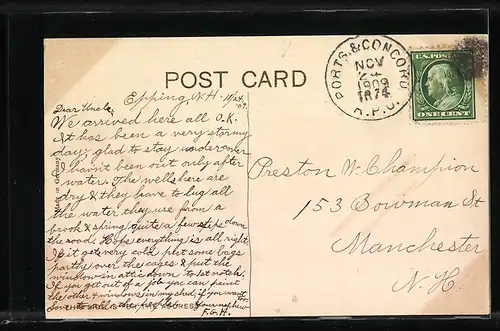 POST CARD
PORTS. & CONCORD
NOV
24
1909
1874
R.P.O.
U.S. POSTAGE
ONE CENT
Epping N.H. 11/24
09
Dear Uncle,
We arrived here all O.K.
It has been a very stormy
day. glad to stay under cover
haven't been out only after
water. The wells here are
dry & they have to lug all
the water they use from a
brook & spring quite a few steps down
the road. Hope everything is all right
If it gets very cold put some bags
partly over the cages & put the
window in attic down to 1st notch.
If you get out of a job you can paint
the other 4 windows in my shed, if you want
to. Your nephew
F.G.H.
Preston W. Champion
153 Bowman St
Manchester
N.H.